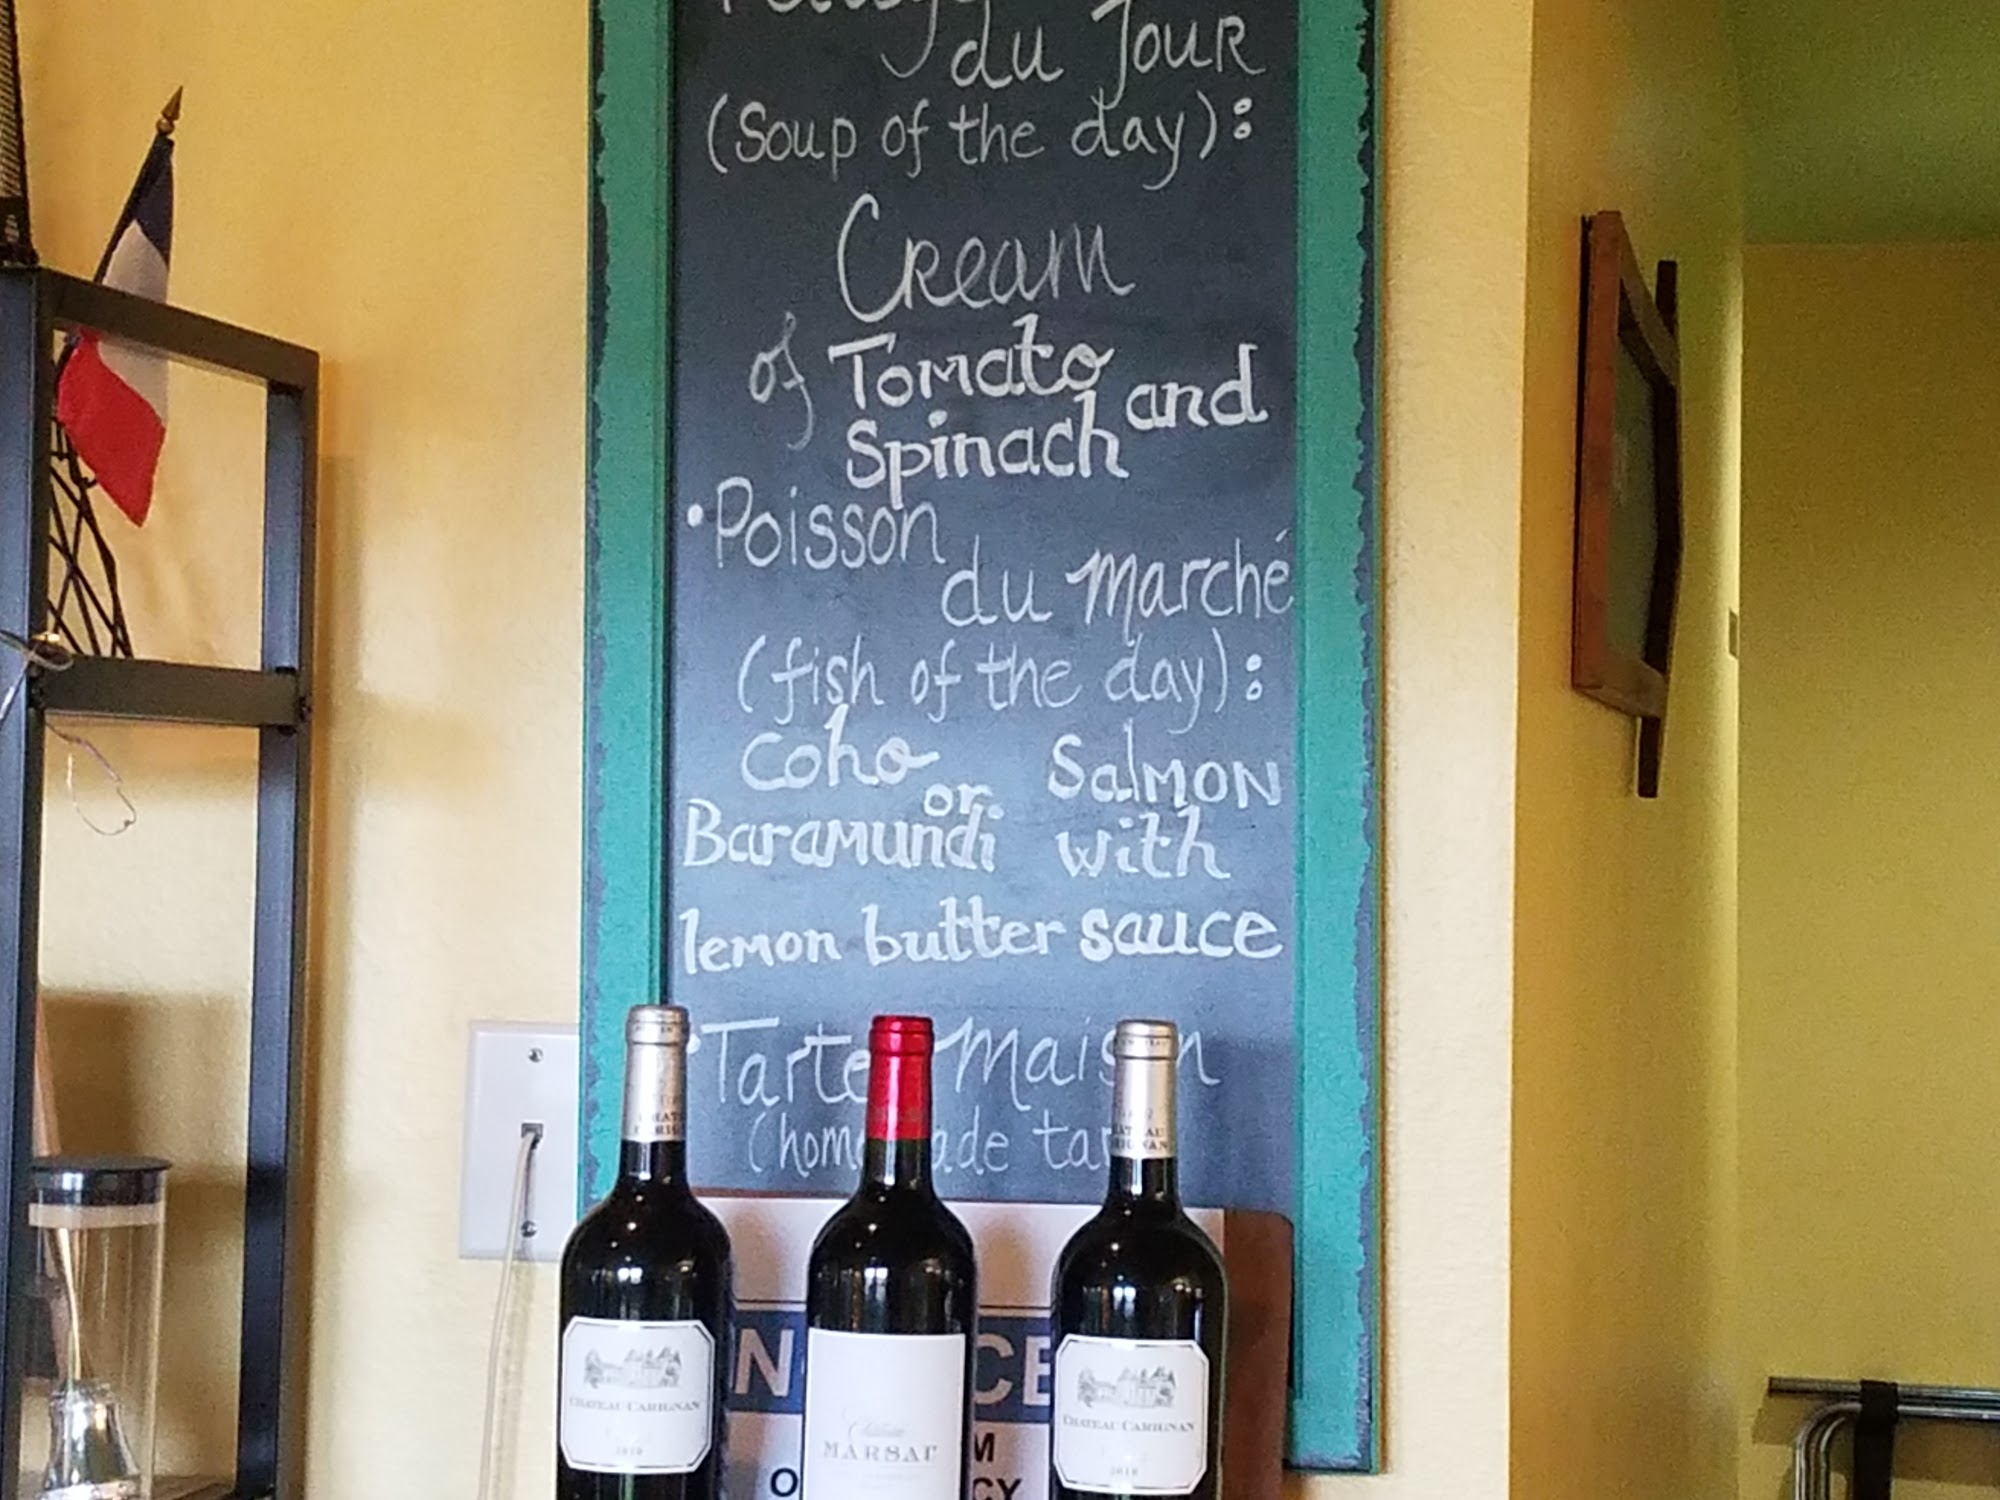 du Jour
(Soup of the day):
Cream
of Tomato and
Spinach
• Poisson
du Marché
(fish of the day):
Coho Salmon
or
Baramundi with
lemon butter sauce
• Tarte Maison
(homemade
CHATEAU CARIGNAN
2010
Château
MARSAU
CHATEAU CARIGNAN
2010